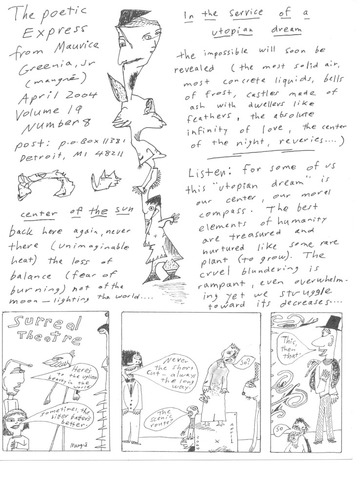 The poetic
Express
from Maurice
Greenia, Jr
(mangré)
April 2004
Volume 19
Number 8
post: p.o. Box 11381
Detroit, MI 48211
center of the sun
back here again, never
there (unimaginable
heat) the loss of
balance (fear of
burning) not of the
moon — lighting the world....
In the service of a
utopian dream
the impossible will soon be
revealed (the most solid air,
most concrete liquids, bells
of frost, castles made of
ash with dwellers like
feathers, the absolute
infinity of love, the center
of the night, reveries....)
Listen: for some of us
this "utopian dream" is
our center, our moral
compass. The best
elements of humanity
are treasured and
nurtured like some rare
plant (to grow). The
cruel blundering is
rampant, even overwhelm-
ing yet we struggle
toward its decreases...
Surreal
Theatre
Here's
in the
sometimes, the
tastes
better
Never
the short
cut always
the long
way!
the
scenic
route!
So!
This,
then
that!
So